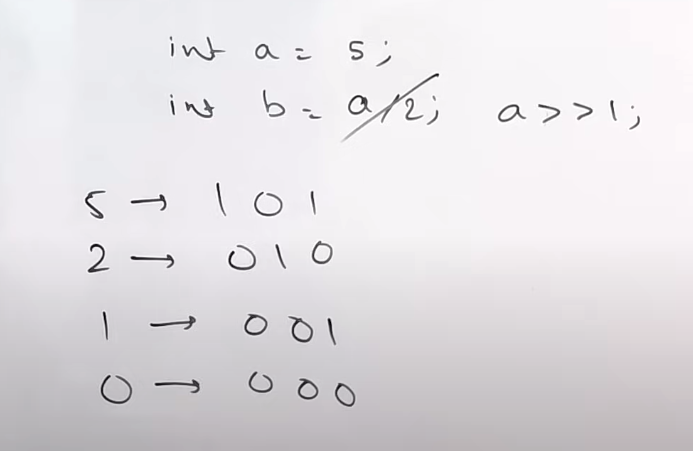 int a = 5;
int b = a/2; a>>1;
5 → 101
2 → 010
1 → 001
0 → 000